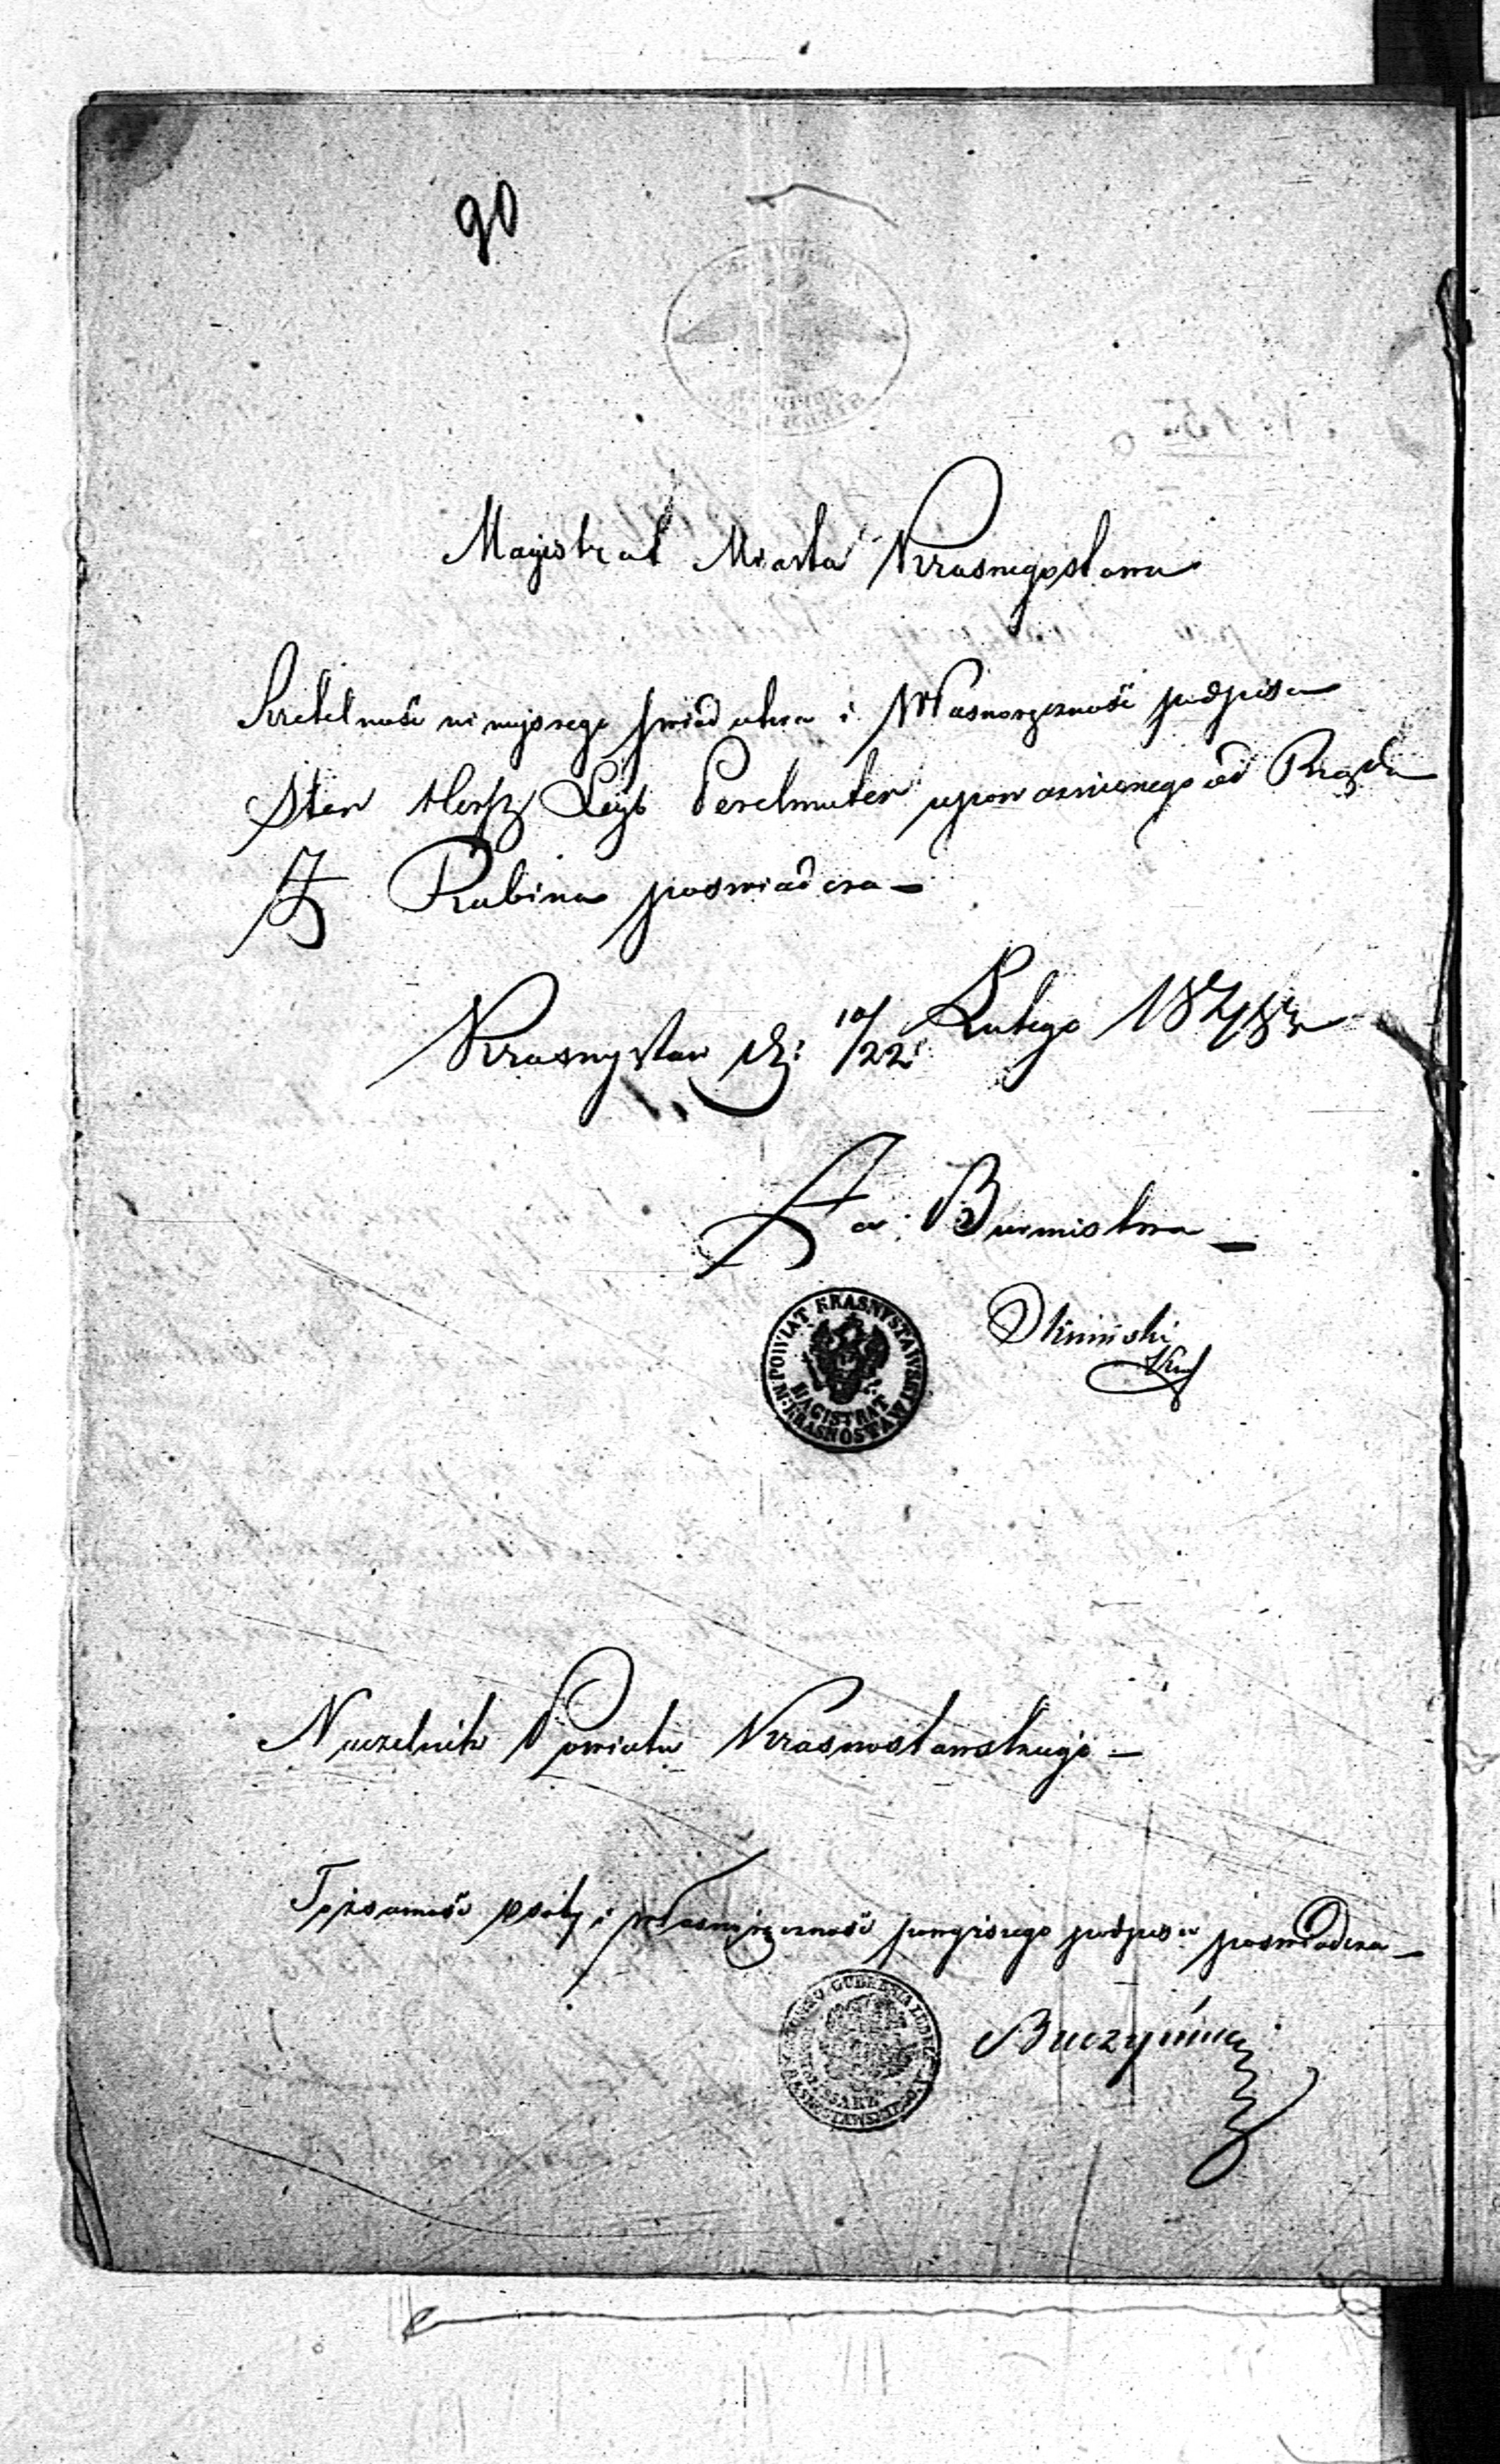 90
Magistrat Miasta Krasnegostawu
Rzetelność niniejszego świadectwa i Własnoręczność podpisu
Star Hersz Leyb Perelmuter upoważnionego od Rządu
Za Rabina poswiadcza –
Krasnystaw d: 10/22 Lutego
Za: Burmistrza –
POWIAT KRASNYSTAWSKI
MAGISTRAT
M. KRASNOSTAW
Naczelnik Powiatu Krasnostawskiego –
Tożsamość osoby i własnoręczność powyższego podpisu poswiadcza –